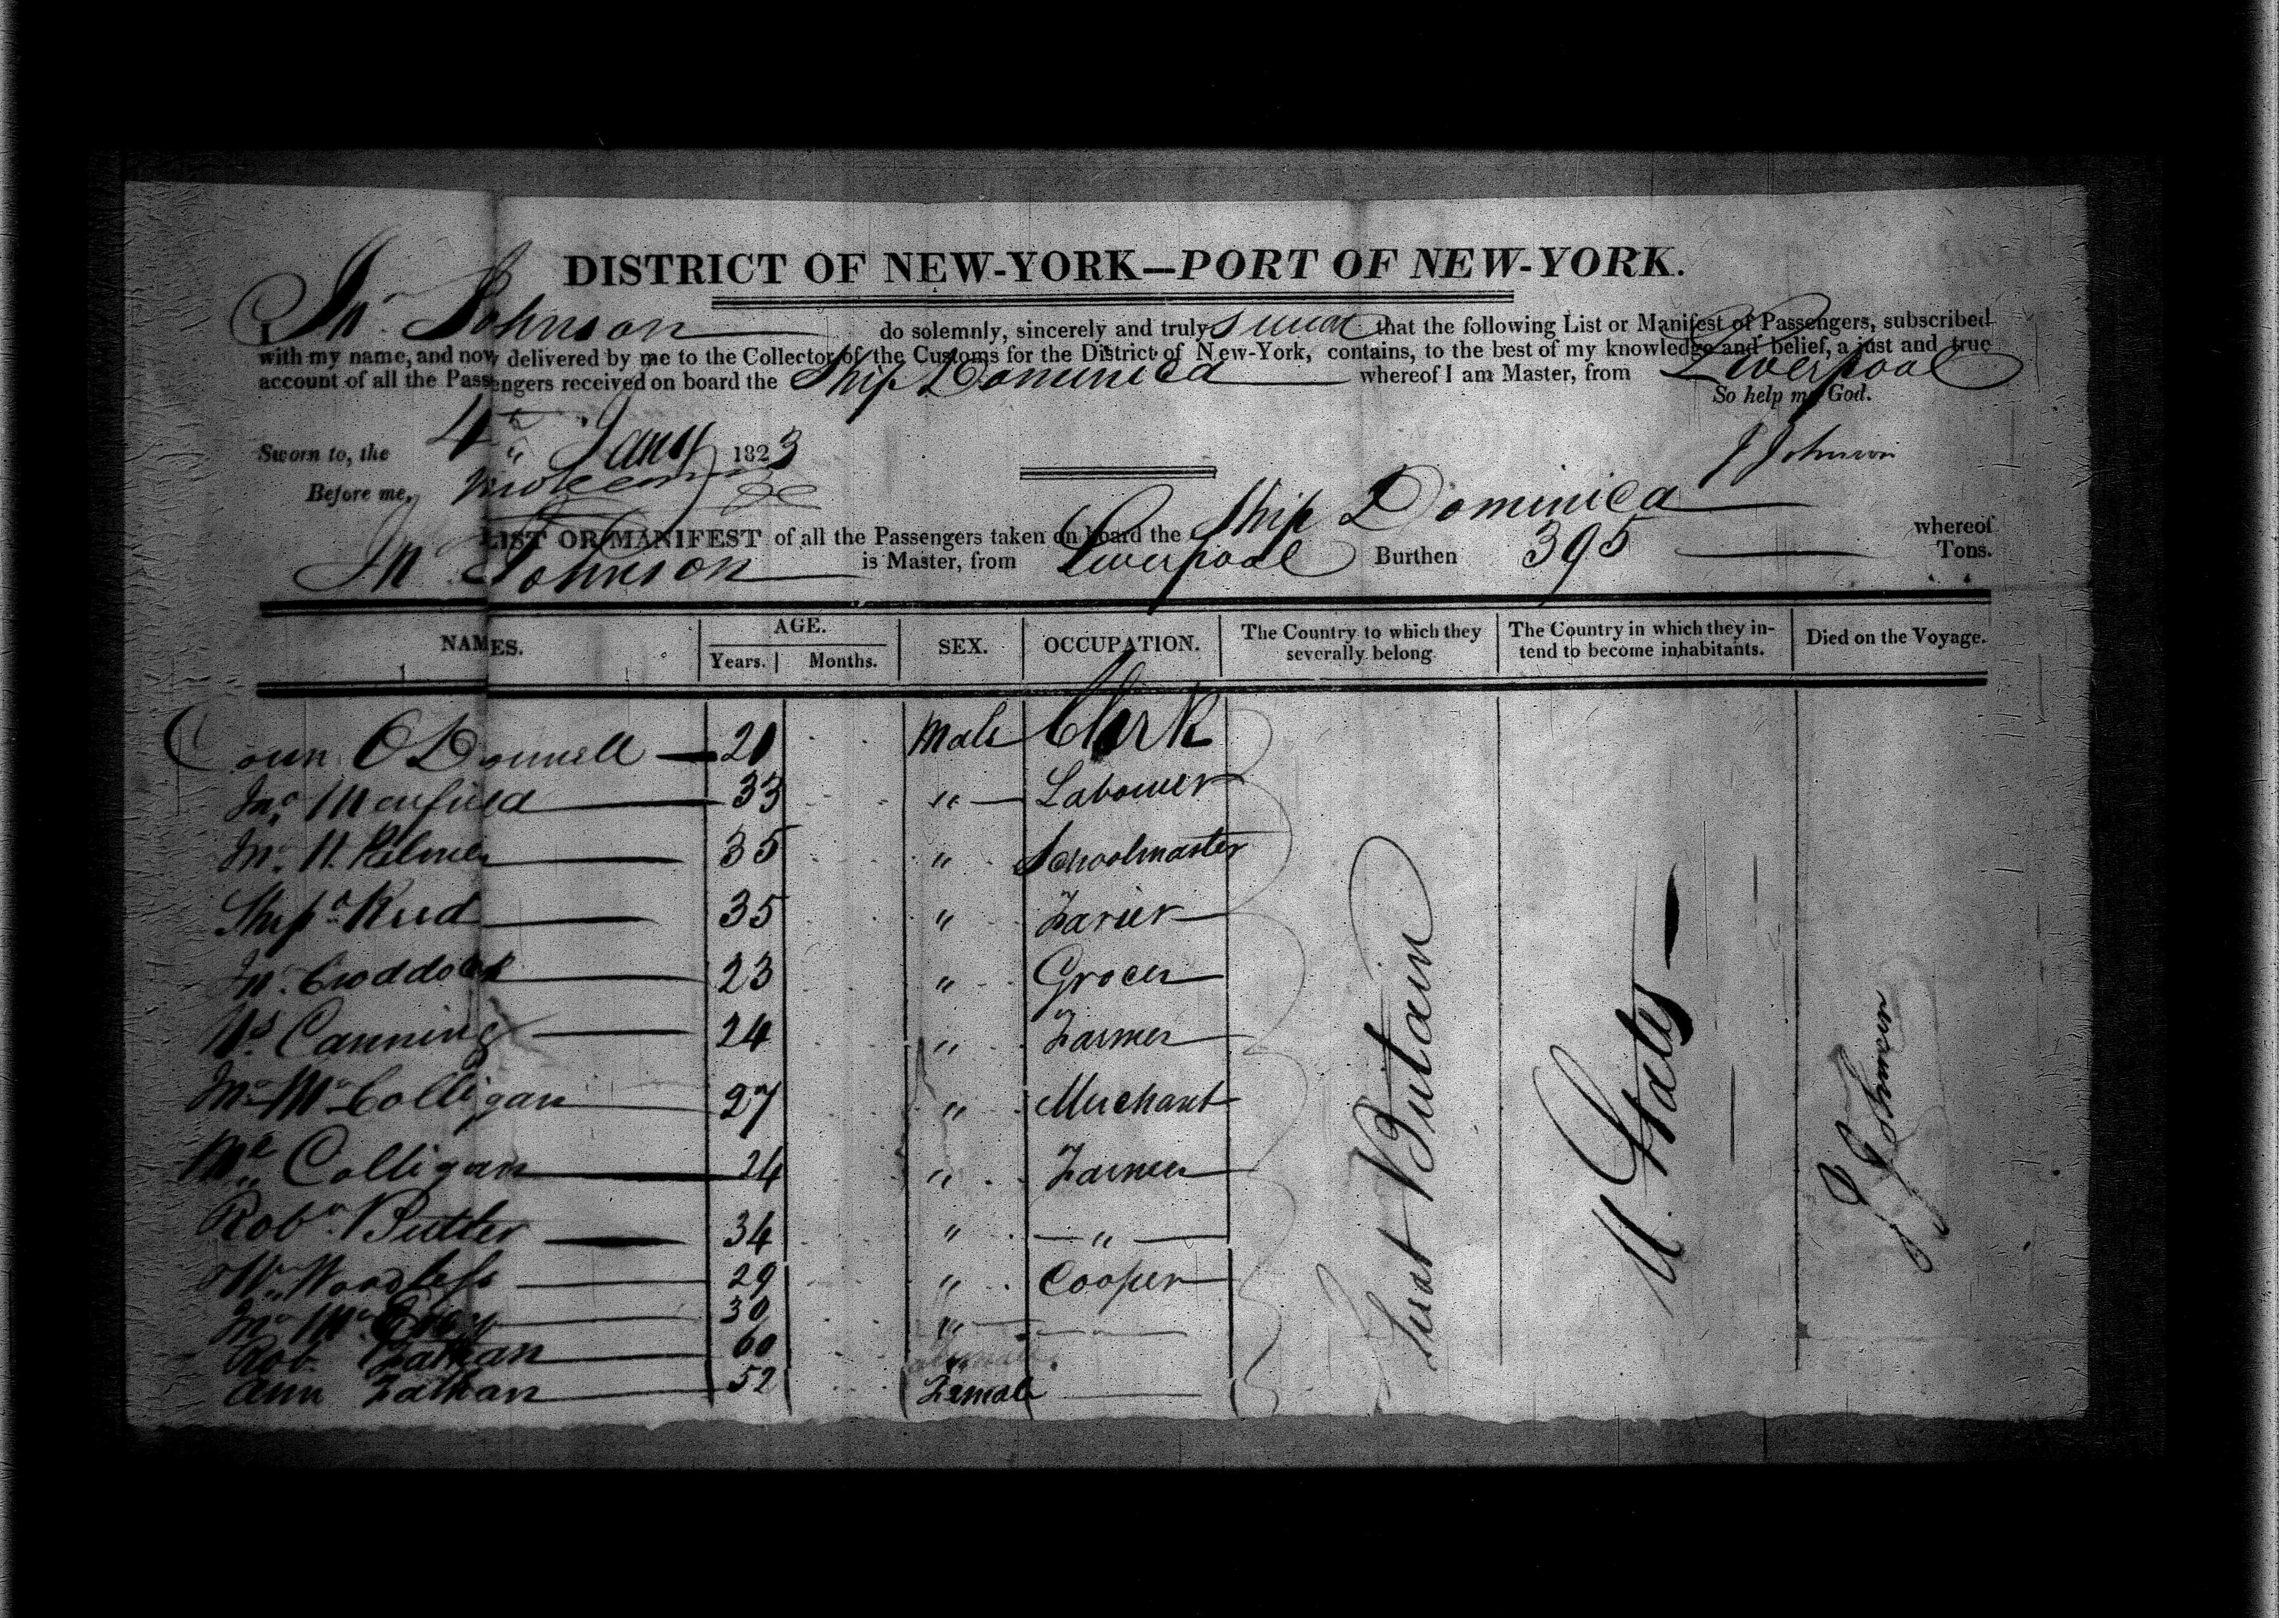 DISTRICT OF NEW-YORK—PORT OF NEW-YORK.
Jno. Johnson do solemnly, sincerely and truly swear that the following List or Manifest of Passengers, subscribed
with my name, and now delivered by me to the Collector of the Customs for the District of New-York, contains, to the best of my knowledge and belief, a just and true
account of all the Passengers received on board the Ship Dominica whereof I am Master, from Liverpool
So help me God.
Sworn to, the 4th Jany 1823
J Johnson
Before me,
LIST OR MANIFEST of all the Passengers taken on board the Ship Dominica whereof
Jn Johnson is Master, from Liverpool Burthen 395 Tons.
NAMES. AGE. Years. Months. SEX. OCCUPATION. The Country to which they severally belong. The Country in which they intend to become inhabitants. Died on the Voyage.
O Donnell 21 Male Clerk
Jno. 33 " Labourer
Jno. H. Palmer 35 " Schoolmaster
Reed 35 " Farier
Jno. Croddock 23 " Grocer
Canning 24 " Farmer
Jno. Mc Colligan 27 " Merchant
Colligan 24 " Farmer
Robt. Butler 34 " "
Wm. Woodlefs 29 " Cooper
Jno. Mc 30 "
Rob. 60 "
Ann 52 Female
Great Britain
U. States
J Johnson